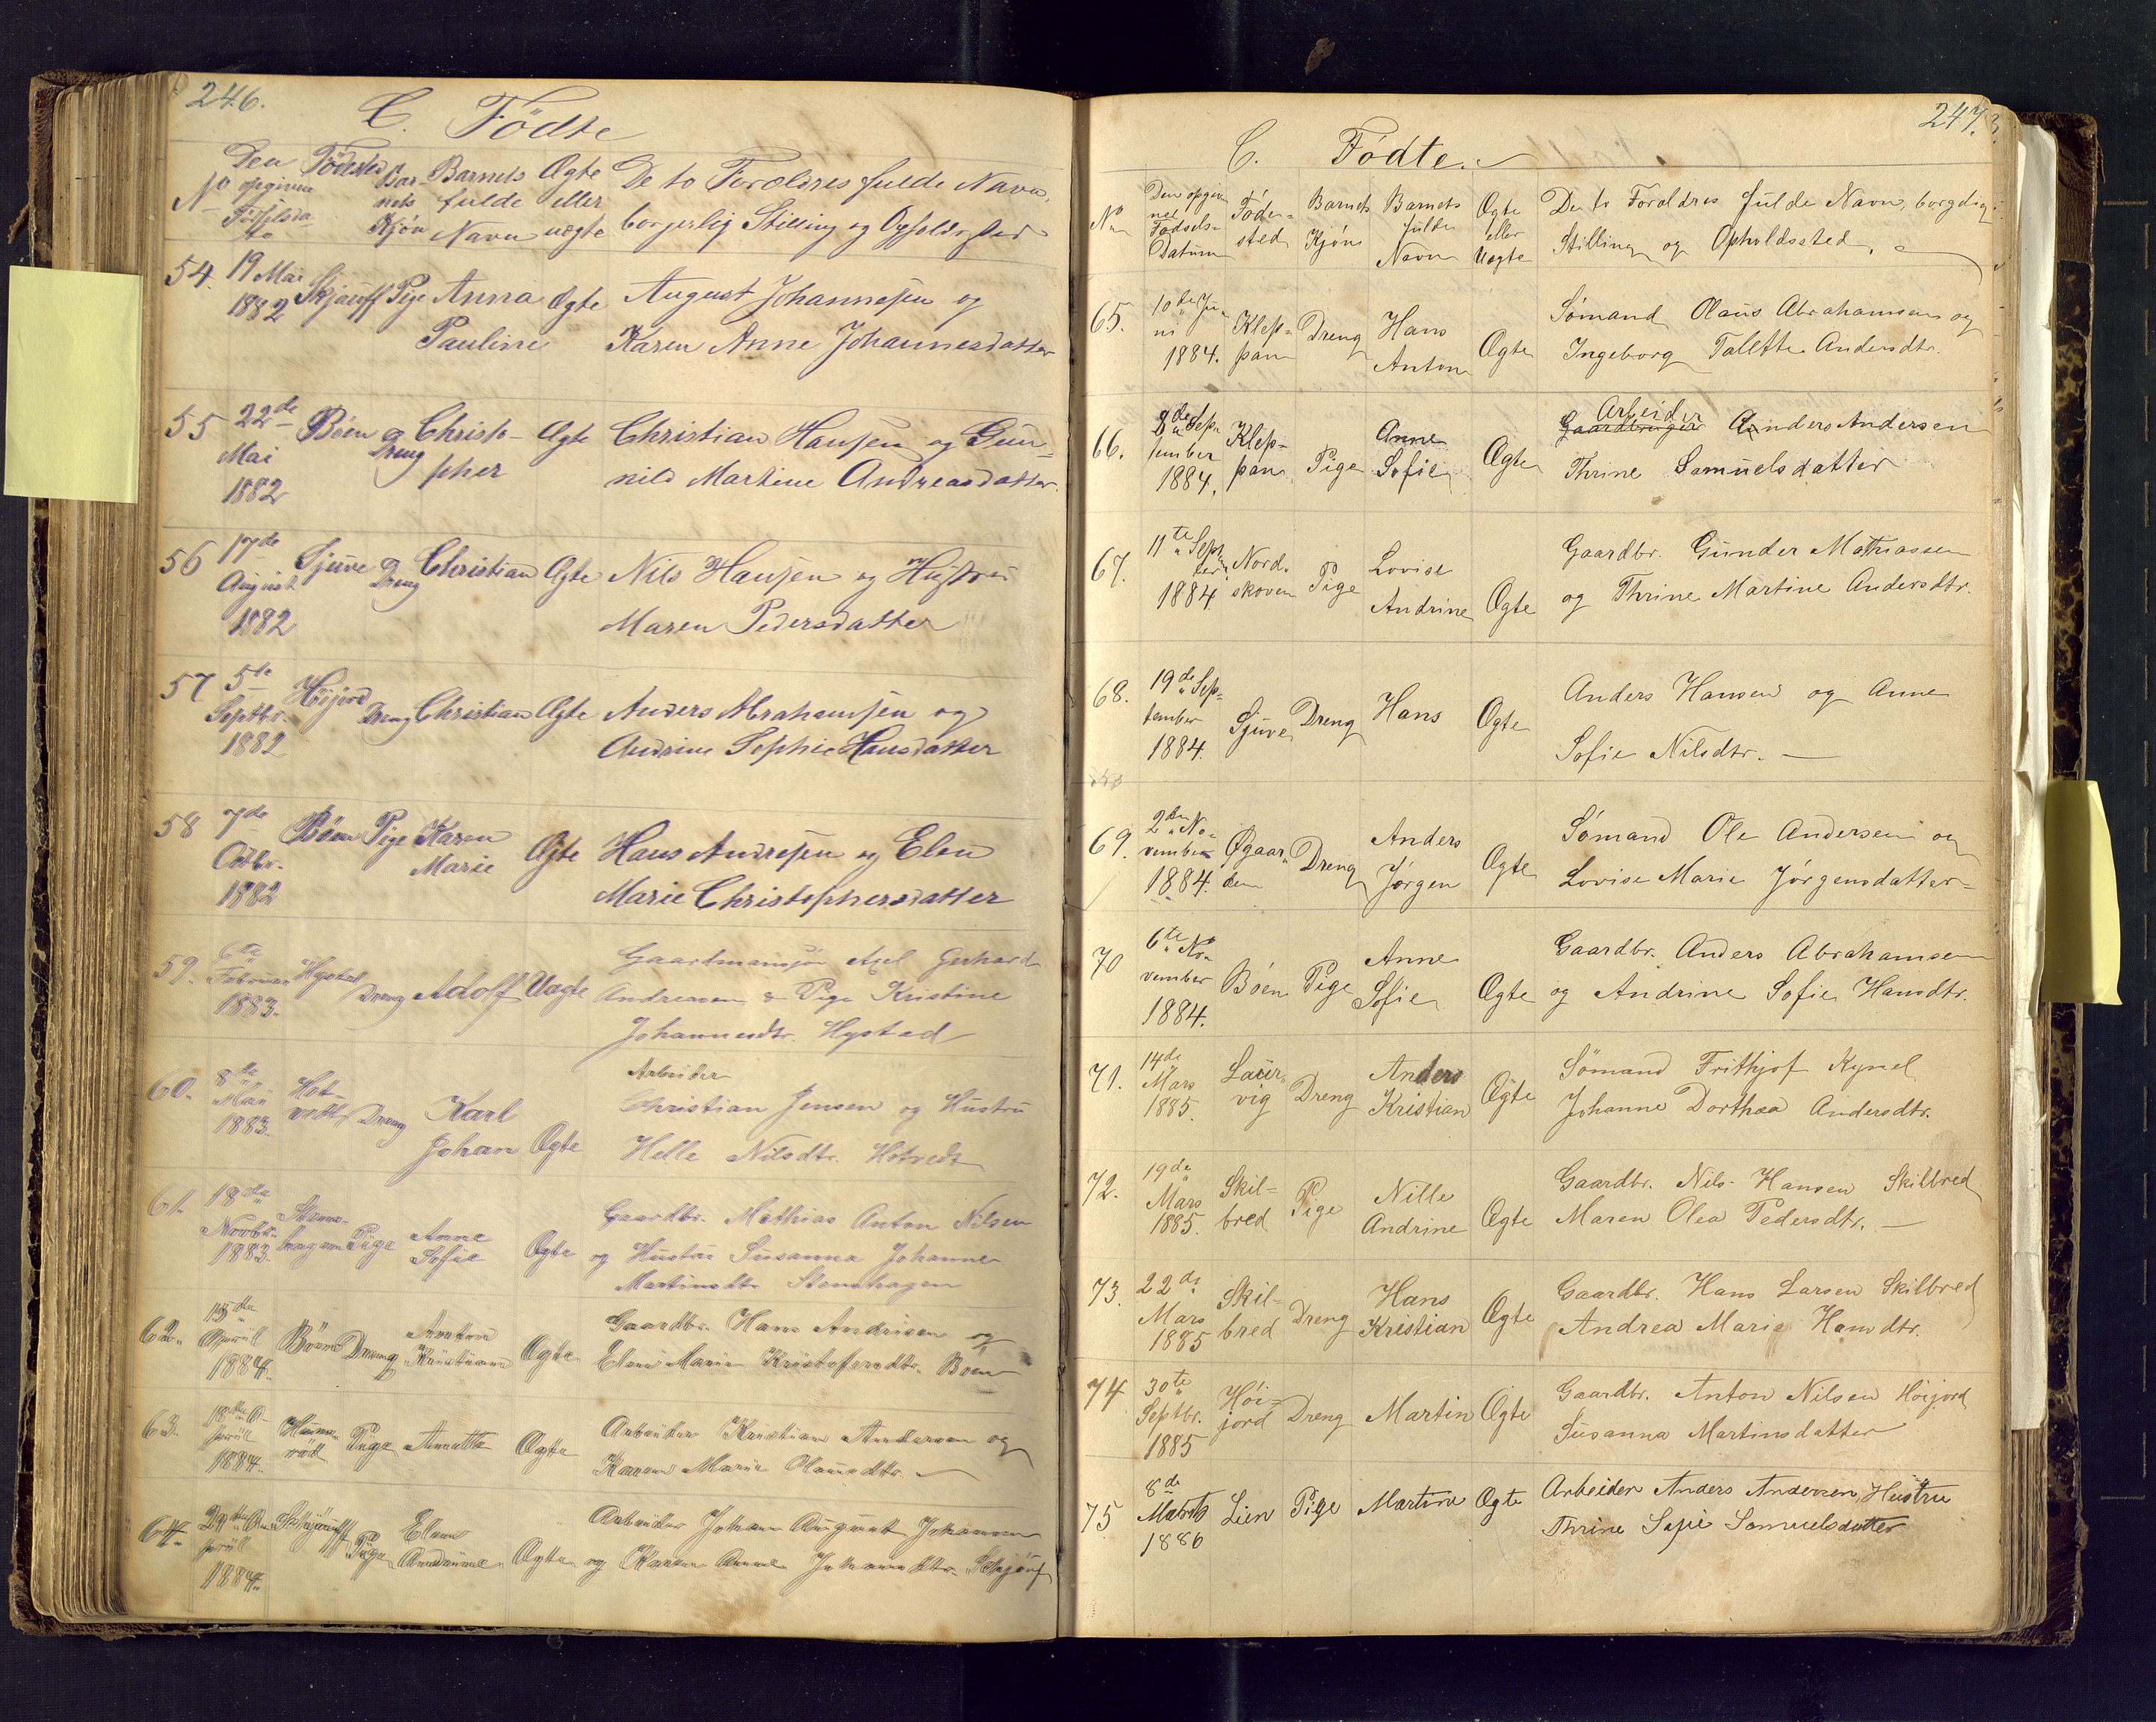 246.
C. Födte
No
Den opgivne Fødselsda- to
Födested
Bar- nets Kjön
Barnets fulde Navn
Ægte eller uægte
De to Forældres fulde Navn,
borgerlig Stilling og Opholdssted
54. 19 Mai 1882 Skjauff Pige Anna Pauline Ægte August Johannesen og
Karen Anne Johannesdatter
55 22de Mai 1882 Böen Dreng Christo- pher Ægte Christian Hansen og Gun-
nild Martine Andreasdatter.
56 17de August 1882 Sjuve Dreng Christian Ægte Nils Hansen og Hustru
Maren Pedersdatter
57 5te Septbr. 1882 Høijord Dreng Christian Ægte Anders Abrahamsen og
Andrine Sophie Hansdatter
58 7de Octbr. 1882 Böen Pige Karen Marie Ægte Hans Andresen og Elen
Marie Christophersdatter
59. 6te Februar 1883. Hystad Dreng Adolf Uægte Gaardmansön Axel Gerhard
Andresen & Pige Kristine
Johannesdtr. Hystad
60. 8de Mai 1883. Hot- vedt Dreng Karl Johan Ægte Arbeider
Christian Jensen og Hustru
Helle Nilsdtr. Hotvedt
61. 18de Novbr. 1883. Stens- hagen Pige Anne Sofie Ægte Gaardbr. Mathias Anton Nilsen
og Hustru Susanna Johanne
Martinsdtr. Stenshagen
62. 13de April 1884. Böen Dreng Anton Kristian Ægte Gaardbr. Hans Andrisen og
Elen Marie Kristofersdtr. Böen
63. 18de A- pril 1884. Pige Annette Ægte Arbeider Kristian Andersen og
Karen Marie Olausdtr.
64. 29de A- pril 1884. Skjauff Pige Elen Andrine Ægte Arbeider Johan August Johansen
og Karen Anne Johannesdtr. Skjauf
247.
C. Födte.
No
Den opgiv- ne Fødsels- Datum
Føde- sted
Barnets Kjön
Barnets fulde Navn
Ægte eller Uægte
De to Foraldres fulde Navn, borgelige
Stilling og Opholdssted.
65. 10de Ju- ni 1884. Klep- pan Dreng Hans Anton Ægte Sømand Olaus Abrahamsen og
Ingeborg Talette Andersdtr.
66. 8de Sep- tember 1884. Klep- pan Pige Anne Sofie Ægte Arbeider
Gaardbruger Anders Andersen
Thrine Samuelsdatter
67. 11te Sept 1884 Nord- skoven Pige Lovise Andrine Ægte Gaardbr. Gunder Mathiassen
og Thrine Martine Andersdtr.
68. 19de Sep- tember 1884. Sjuve Dreng Hans Ægte Anders Hansen og Anne
Sofie Nilsdtr.
69. 2den No- vember 1884. Øgaar- den Dreng Anders Jørgen Ægte Sømand Ole Andersen og
Lovise Marie Jörgensdatter
70 6te No- vember 1884. Böen Pige Anne Sofie Ægte Gaardbr. Anders Abrahamsen
og Andrine Sofie Hansdtr.
71. 14de Mars 1885. Laur- vig Dreng Anders Kristian Ægte Sömand Frithjof Kynel
Johanne Dorthea Andersdtr.
72. 19de Mars 1885. Skil- bred Pige Nille Andrine Ægte Gaardbr. Nils Hansen Skilbred
Maren Olea Pedersdtr.
73. 22de Mars 1885 Skil- bred Dreng Hans Kristian Ægte Gaardbr. Hans Larsen Skilbred
Andrea Marie Hansdtr.
74 30te Septbr. 1885 Höi- jord Dreng Martin Ægte Gaardbr. Anton Nilsen Höijord
Susanna Martinsdatter
75 8de Marts 1886 Lien Pige Martine Ægte Arbeider Anders Andersen, Hustru
Thrine Sofie Samuelsdatter